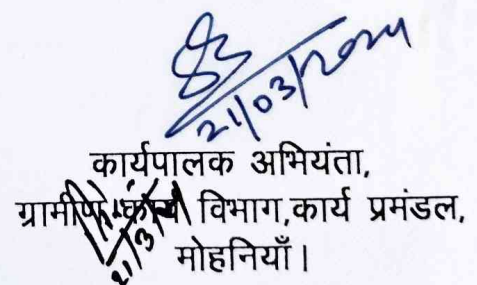 21/03/2024
कार्यपालक अभियंता,
ग्रामीण कार्य विभाग,कार्य प्रमंडल,
मोहनियाँ।
21/3/24